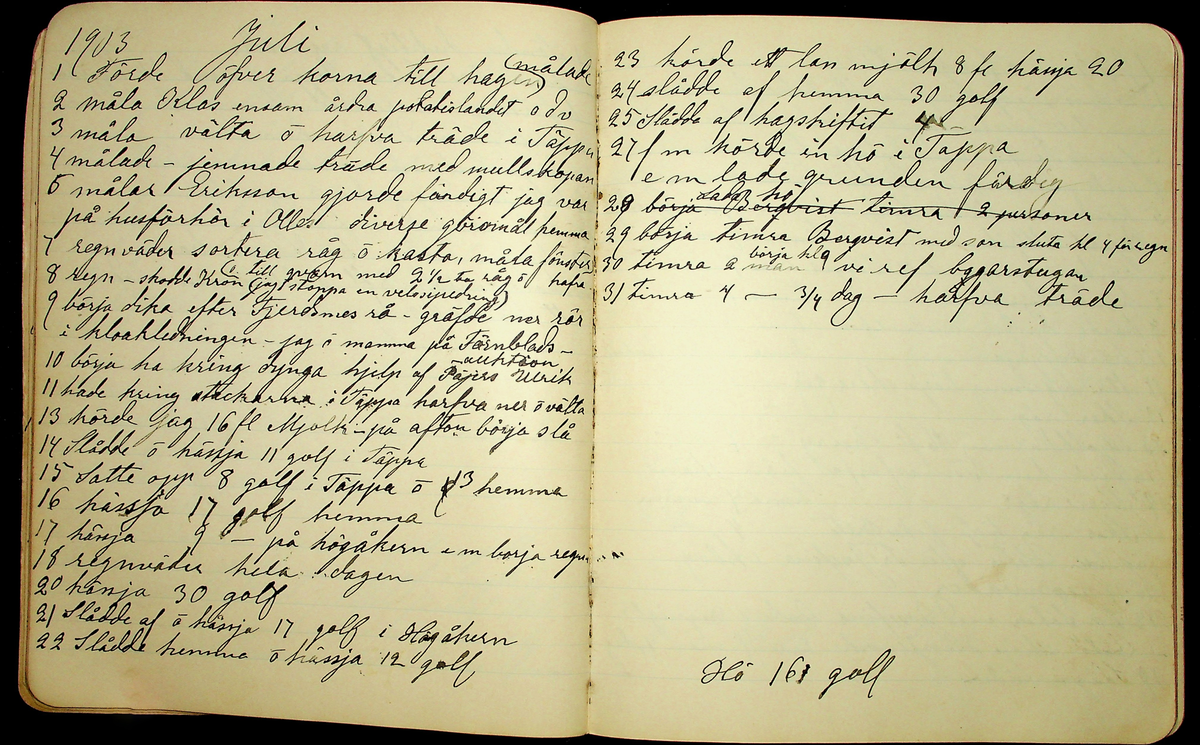 1903 Juli
1 Förde öfver korna till hagen (målade)
2 måla Klas ensam årdra potatislandet o d v
3 måla välta ö harfva träde i Täppa
4 målade – jemnade träde med mullskopan
5 målar Eriksson gjorde färdigt jag var
på husförhör i Olles diverse göromål hemma
7 regnväder sortera råg ö kasta, måla fönster
8 regn – skodde Kron (jag till qvarn med 2 1/2 råg ö hafra
stoppa en velosipedring)
9 börja dika efter Fjerdsmes rå – gräfde ner rör
i kloakledningen – jag ö mamma på Färnblads–
auktion
10 börja ha kring dynga hjelp af Täjers Ulrik
11 hade kring stackarna i Täppa harfva ner ö välta
13 körde jag 16 fl Mjölk – på afton börja slå
14 Slådde ö hässja 11 golf i Täppa
15 Satte opp 8 golf i Täppa ö 13 hemma
16 hässja 17 golf hemma
17 hässja 9 – på högåkern e m börja regn
18 regnväder hela dagen
20 hässja 30 golf
21 Slådde af ö hässja 17 golf i Högåkern
22 Slådde hemma ö hässja 12 golf
23 körde ett lan mjölk 8 fl hässja 20
24 slådde af hemma 30 golf
25 Slådda af hagskiftit
27 f m körde in hö i Täppa
e m lade grunden färdig
ladat hö
28 börja Bergvist timra 2 personer
29 börja timra Bergvist med son sluta kl 4 för regn
börja kl 9
30 timra 2 man vi ref bygarstugan
31 timra 4 – 3/4 dag – harfva träde
Hö 161 golf